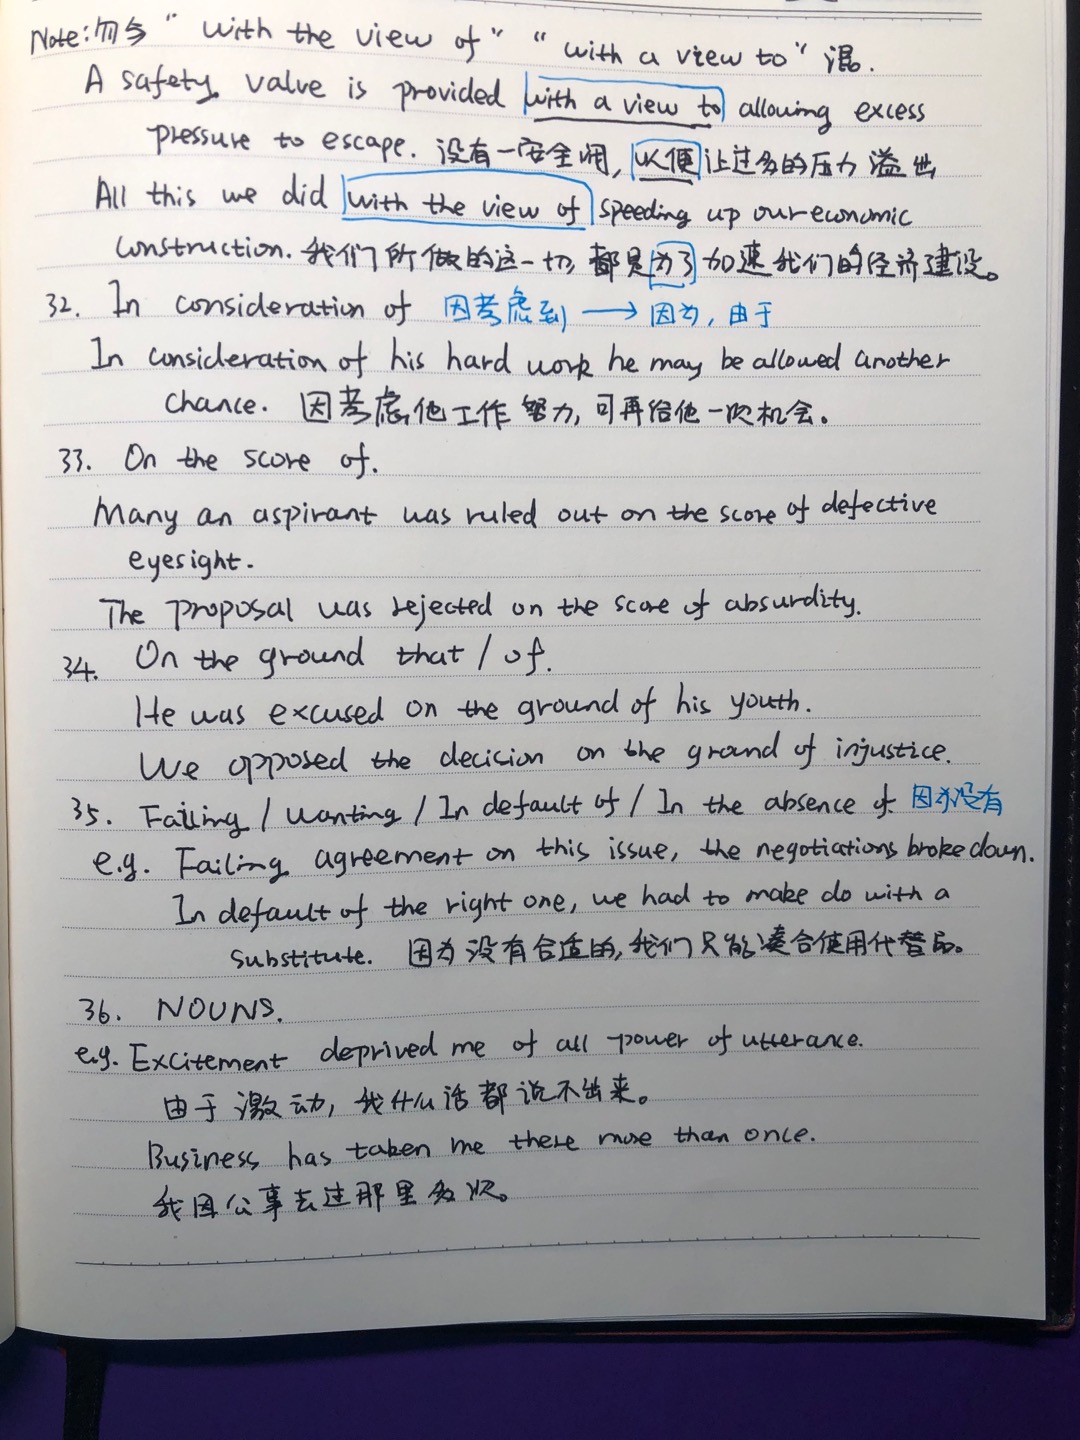 Note: 勿令 " with the view of " " with a view to " 混.
A safety valve is provided with a view to allowing excess
pressure to escape. 没有一安全阀, 以便让过多的压力溢出
All this we did with the view of speeding up our economic
construction. 我们所做的这一切, 都是为了加速我们的经济建设。
32. In consideration of 因考虑到 → 因为, 由于
In consideration of his hard work he may be allowed another
chance. 因考虑他工作努力, 可再给他一次机会。
33. On the score of.
Many an aspirant was ruled out on the score of defective
eyesight.
The proposal was rejected on the score of absurdity.
34. On the ground that / of.
He was excused on the ground of his youth.
We opposed the decision on the ground of injustice.
35. Failing / Wanting / In default of / In the absence of 因为没有
e.g. Failing agreement on this issue, the negotiations broke down.
In default of the right one, we had to make do with a
substitute. 因为没有合适的, 我们只能凑合使用代替品。
36. NOUNS.
e.g. Excitement deprived me of all power of utterance.
由于激动, 我什么话都说不出来。
Business has taken me there more than once.
我因公事去过那里多次。